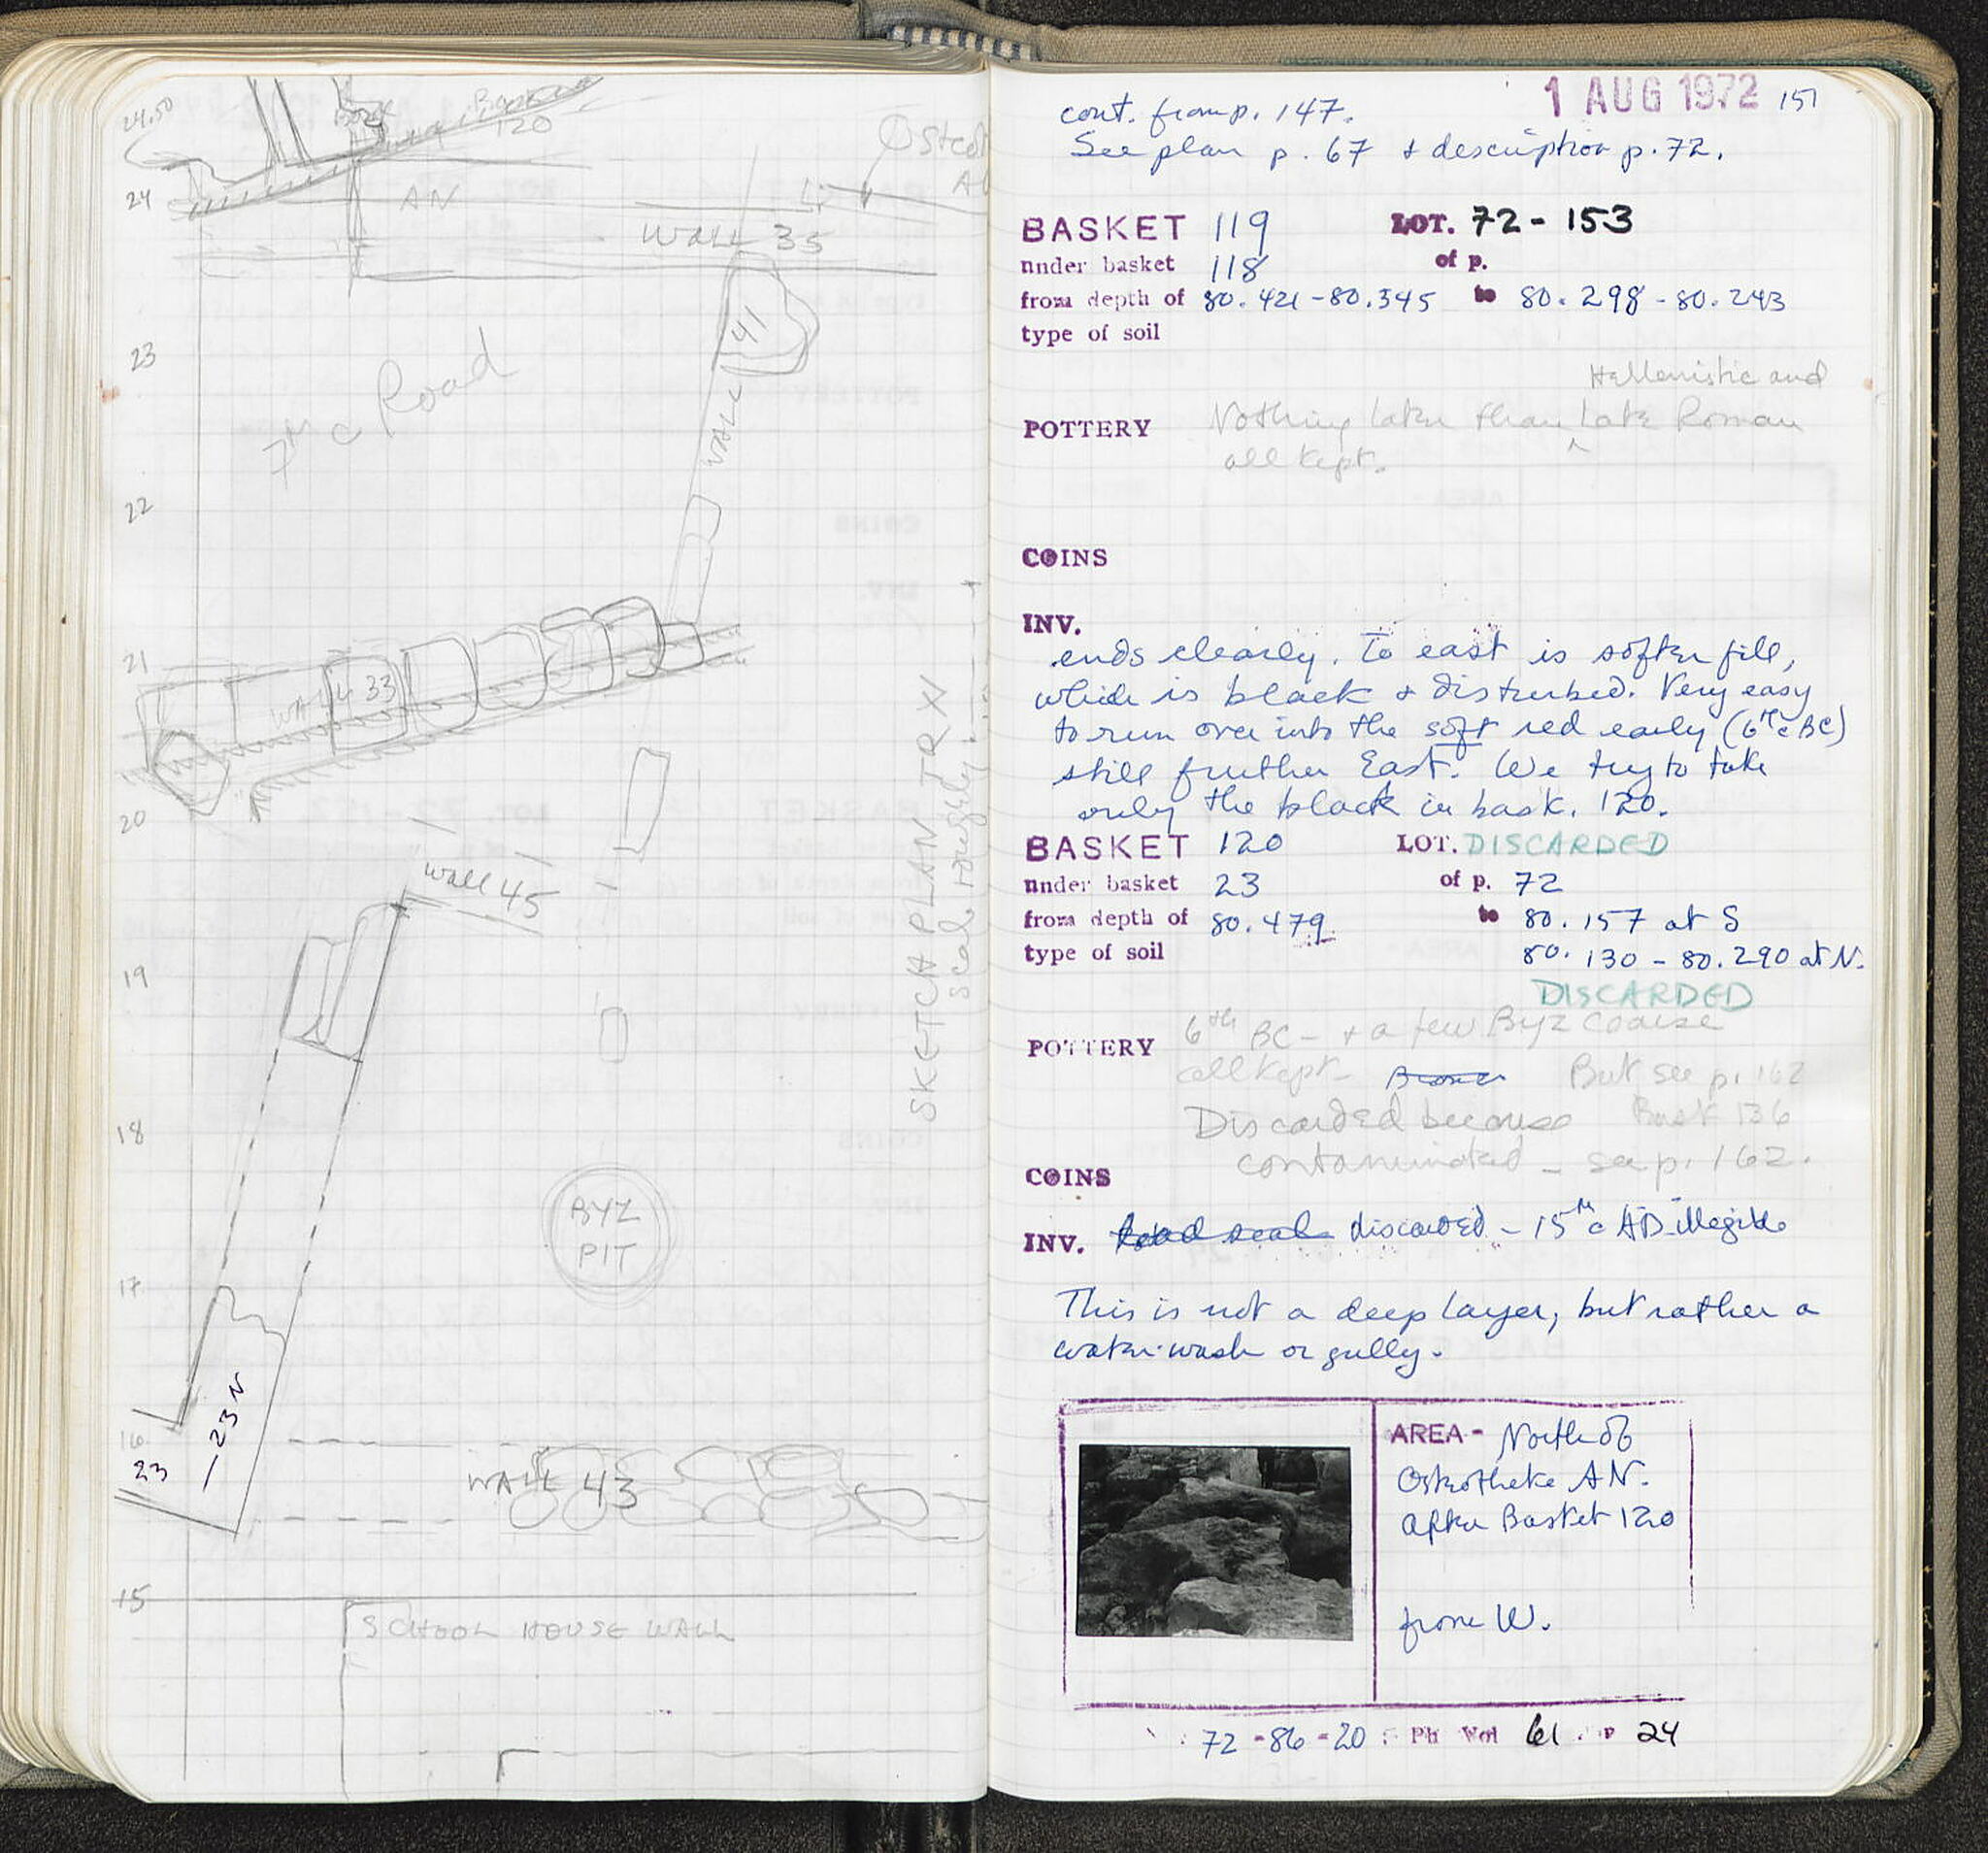 24.50
Basket
120
24
AN
WALL 35
23
WALL 41
7th c Road
22
21
WALL 33
20
wall 45
19
SKETCH PLAN TR X N
Scale roughly
18
BYZ
PIT
17
16
23 N
23
WALL 43
15
SCHOOL HOUSE WALL
1 AUG 1972 151
cont. from p. 147.
See plan p. 67 + description p. 72.
BASKET 119 LOT. 72-153
under basket 118 of p.
from depth of 80.421-80.345 to 80.298-80.243
type of soil
Hellenistic and
POTTERY Nothing later than ^ Late Roman
all kept.
COINS
INV.
ends clearly. To east is softer fill,
which is black + disturbed. Very easy
to run over into the soft red early (6th c BC)
still further East. We try to take
only the black in bask. 120.
BASKET 120 LOT. DISCARDED
under basket 23 of p. 72
from depth of 80.479 to 80.157 at S
type of soil 80.130-80.290 at N.
DISCARDED
POTTERY 6th BC - + a few Byz coarse
all kept - But see p. 162
Discarded because Bask 136
contaminated - see p. 162.
COINS
INV. lead seal discarded - 15th c AD illegible
This is not a deep layer, but rather a
water-wash or gully.
AREA - North of
Osteotheke AN.
After Basket 120
from W.
72-86-20 Ph Vol 61 P 24